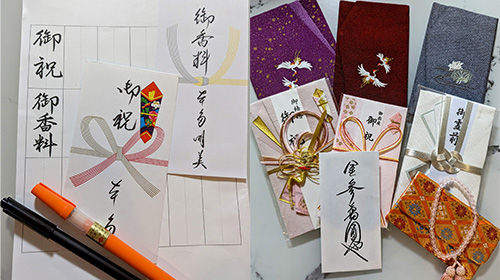 御祝
御香料
御祝
本多
御香料
本多明美
御祝
御霊前
金参萬圓也